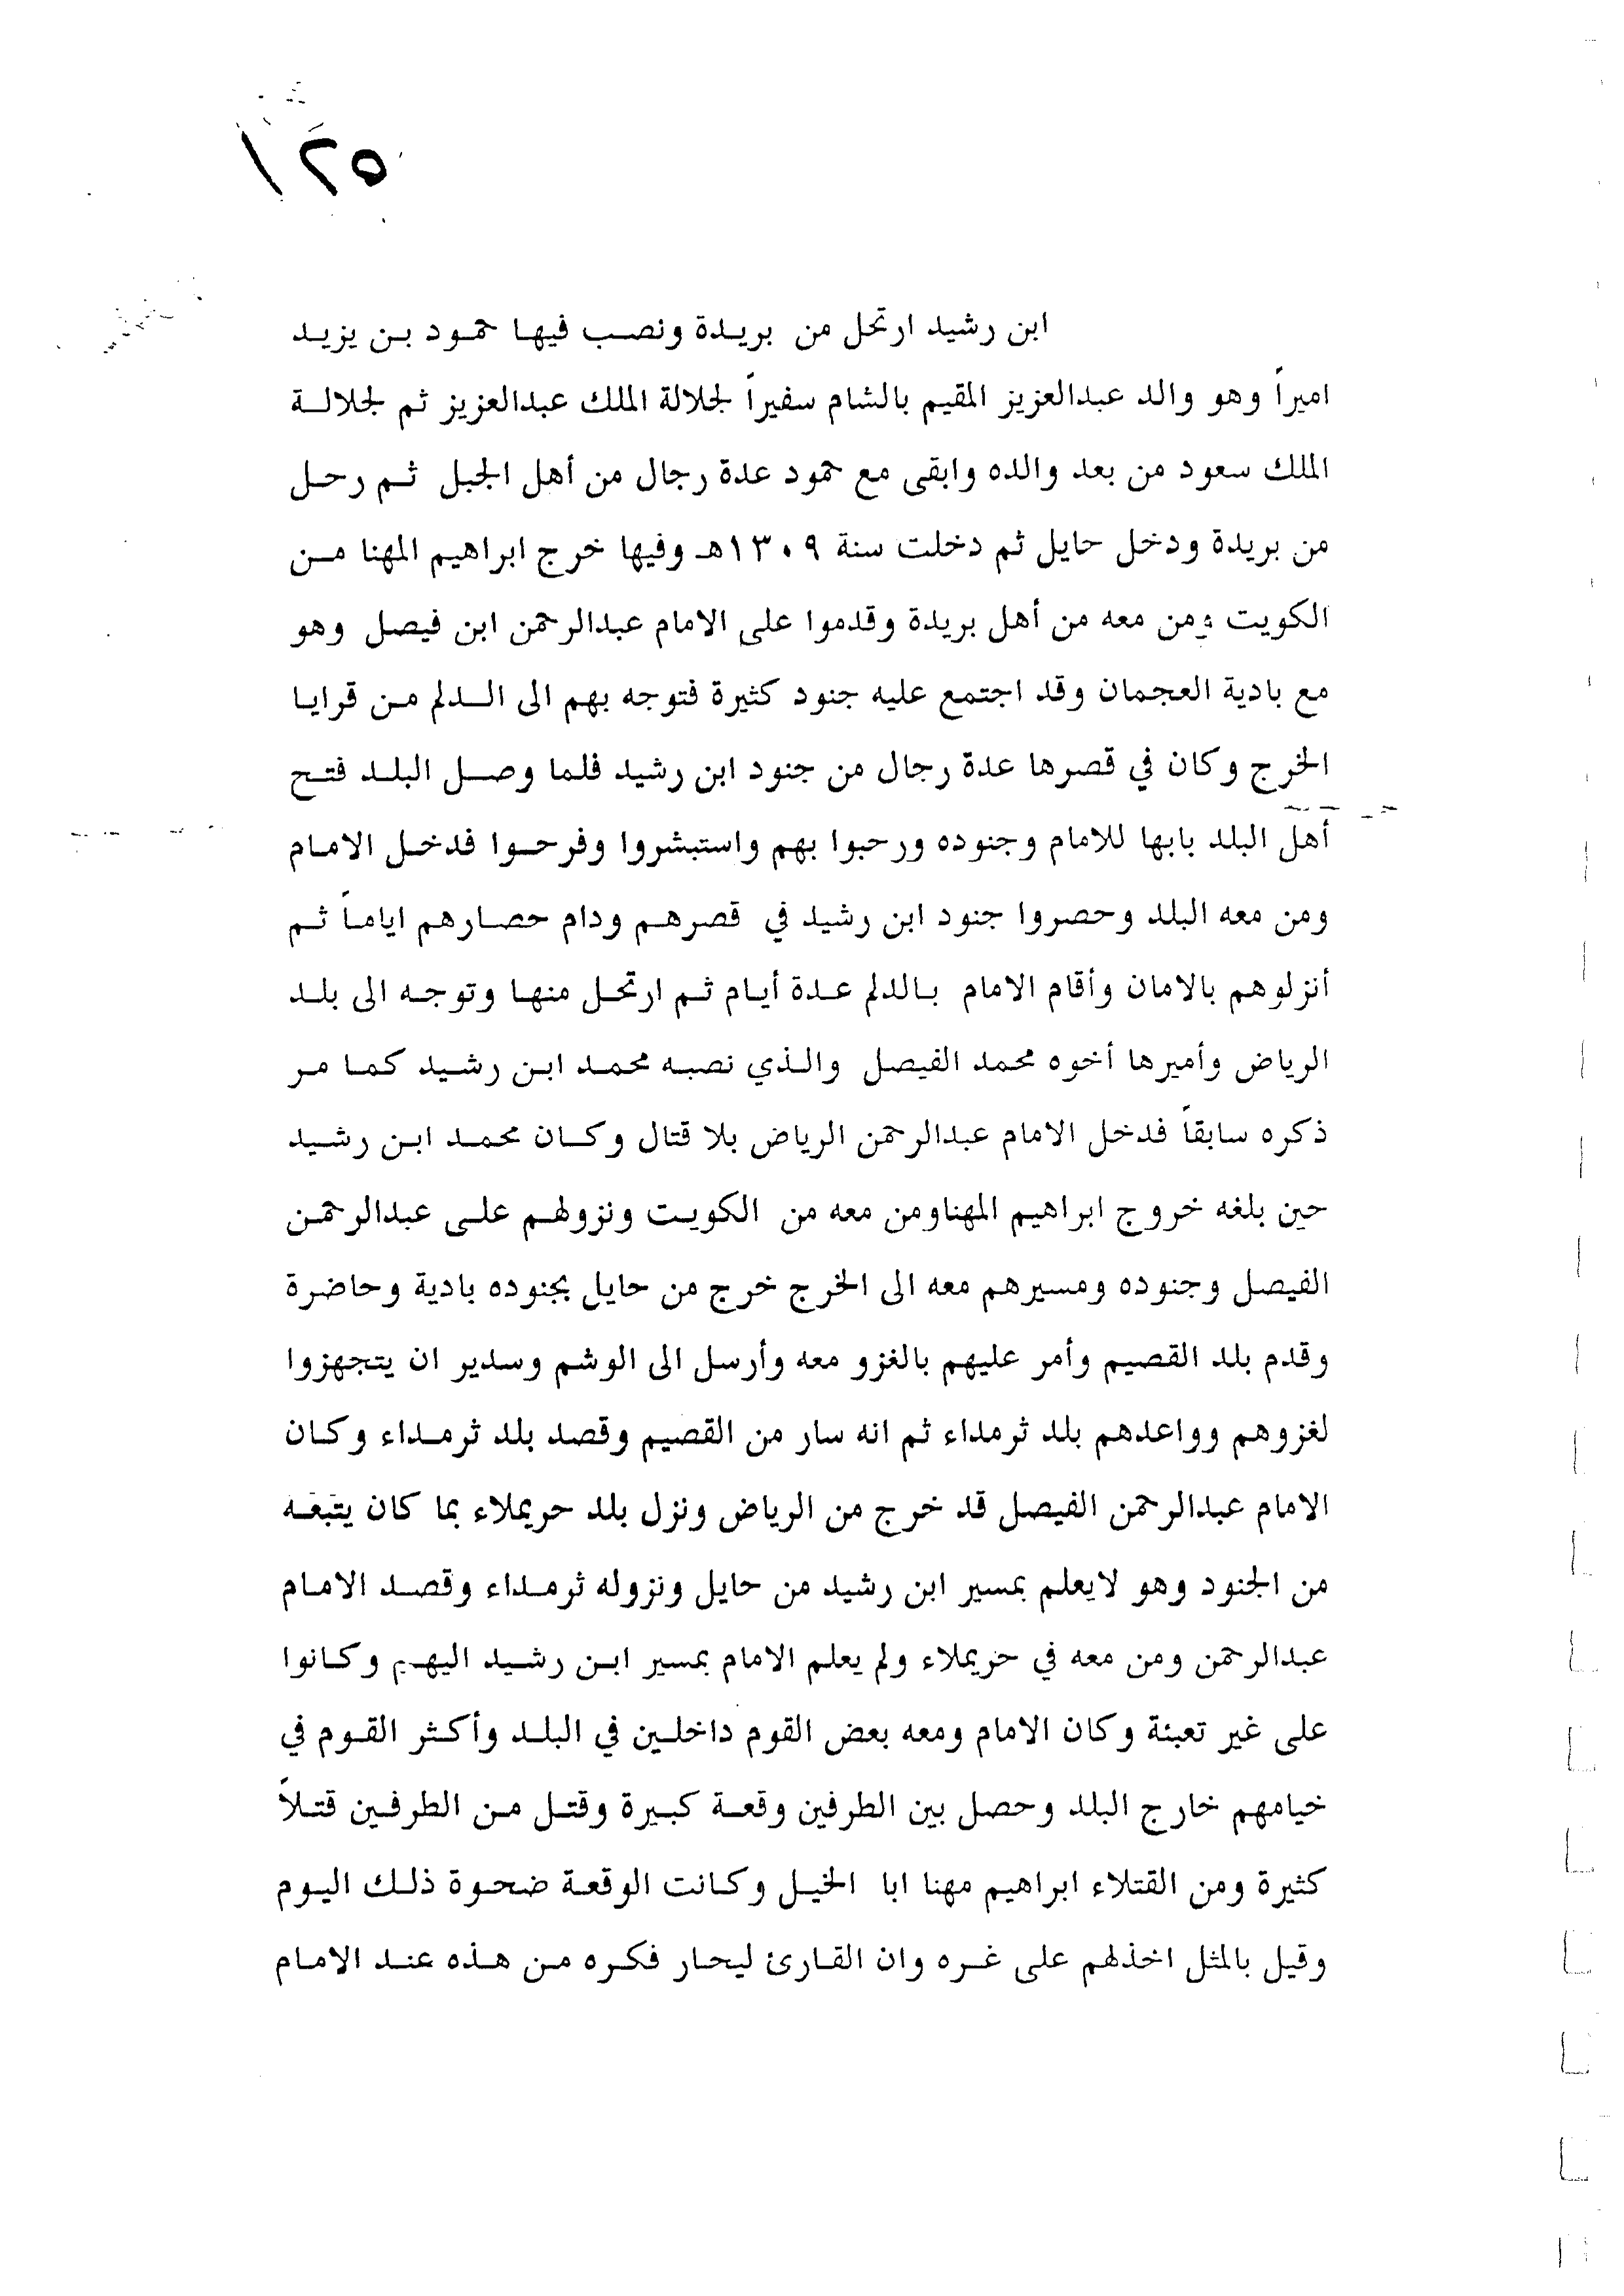 ١٢٥
ابن رشيد ارتحل من بريدة ونصب فيها حمود بن يزيد
اميراً وهو والد عبدالعزيز المقيم بالشام سفيراً لجلالة الملك عبدالعزيز ثم لجلالة
الملك سعود من بعد والده وابقى مع حمود عدة رجال من أهل الجبل ثم رحل
من بريدة ودخل حايل ثم دخلت سنة ١٣٠٩هـ وفيها خرج ابراهيم المهنا من
الكويت ومن معه من أهل بريدة وقدموا على الامام عبدالرحمن ابن فيصل وهو
مع بادية العجمان وقد اجتمع عليه جنود كثيرة فتوجه بهم الى الدلم من قرايا
الخرج وكان في قصرها عدة رجال من جنود ابن رشيد فلما وصل البلد فتح
أهل البلد بابها للامام وجنوده ورحبوا بهم واستبشروا وفرحوا فدخل الامام
ومن معه البلد وحصروا جنود ابن رشيد في قصرهم ودام حصارهم اياماً ثم
أنزلوهم بالامان وأقام الامام بالدلم عدة أيام ثم ارتحل منها وتوجه الى بلد
الرياض وأميرها أخوه محمد الفيصل والذي نصبه محمد ابن رشيد كما مر
ذكره سابقاً فدخل الامام عبدالرحمن الرياض بلا قتال وكان محمد ابن رشيد
حين بلغه خروج ابراهيم المهناومن معه من الكويت ونزولهم على عبدالرحمن
الفيصل وجنوده ومسيرهم معه الى الخرج خرج من حايل بجنوده بادية وحاضرة
وقدم بلد القصيم وأمر عليهم بالغزو معه وأرسل الى الوشم وسدير ان يتجهزوا
لغزوهم وواعدهم بلد ثرمداء ثم انه سار من القصيم وقصد بلد ثرمداء وكان
الامام عبدالرحمن الفيصل قد خرج من الرياض ونزل بلد حريملاء بما كان يتبعه
من الجنود وهو لايعلم بمسير ابن رشيد من حايل ونزوله ثرمداء وقصد الامام
عبدالرحمن ومن معه في حريملاء ولم يعلم الامام بمسير ابن رشيد اليهم وكانوا
على غير تعبئة وكان الامام ومعه بعض القوم داخلين في البلد وأكثر القوم في
خيامهم خارج البلد وحصل بين الطرفين وقعة كبيرة وقتل من الطرفين قتلاً
كثيرة ومن القتلاء ابراهيم مهنا ابا الخيل وكانت الوقعة ضحوة ذلك اليوم
وقيل بالمثل اخذلهم على غره وان القارئ ليحار فكره من هذه عند الامام